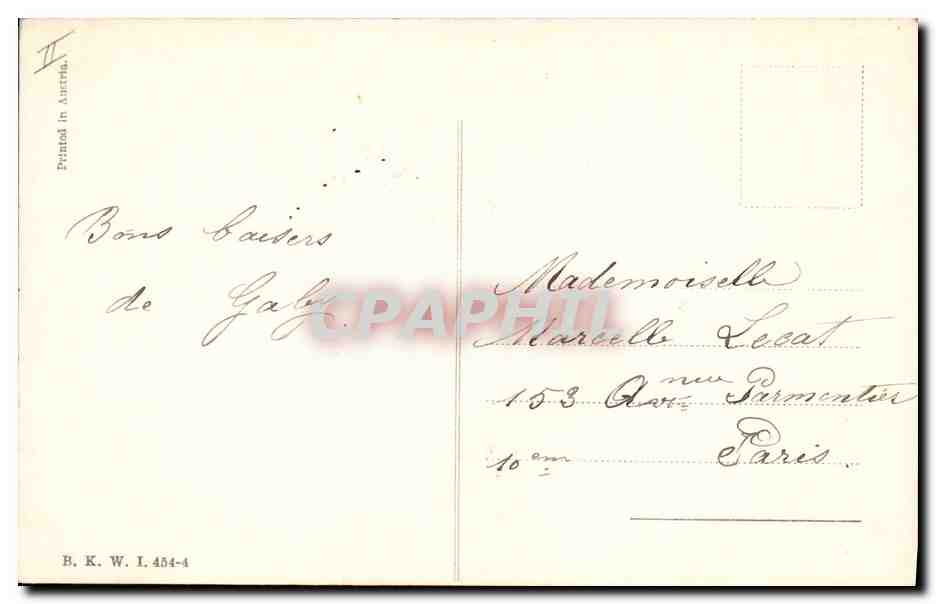 II
Printed in Austria.
Bons baisers
de Gaby
CPAPHIL
Mademoiselle
Marcelle Lecat
153 Avenue Parmentier
10em Paris.
B. K. W. I. 454-4